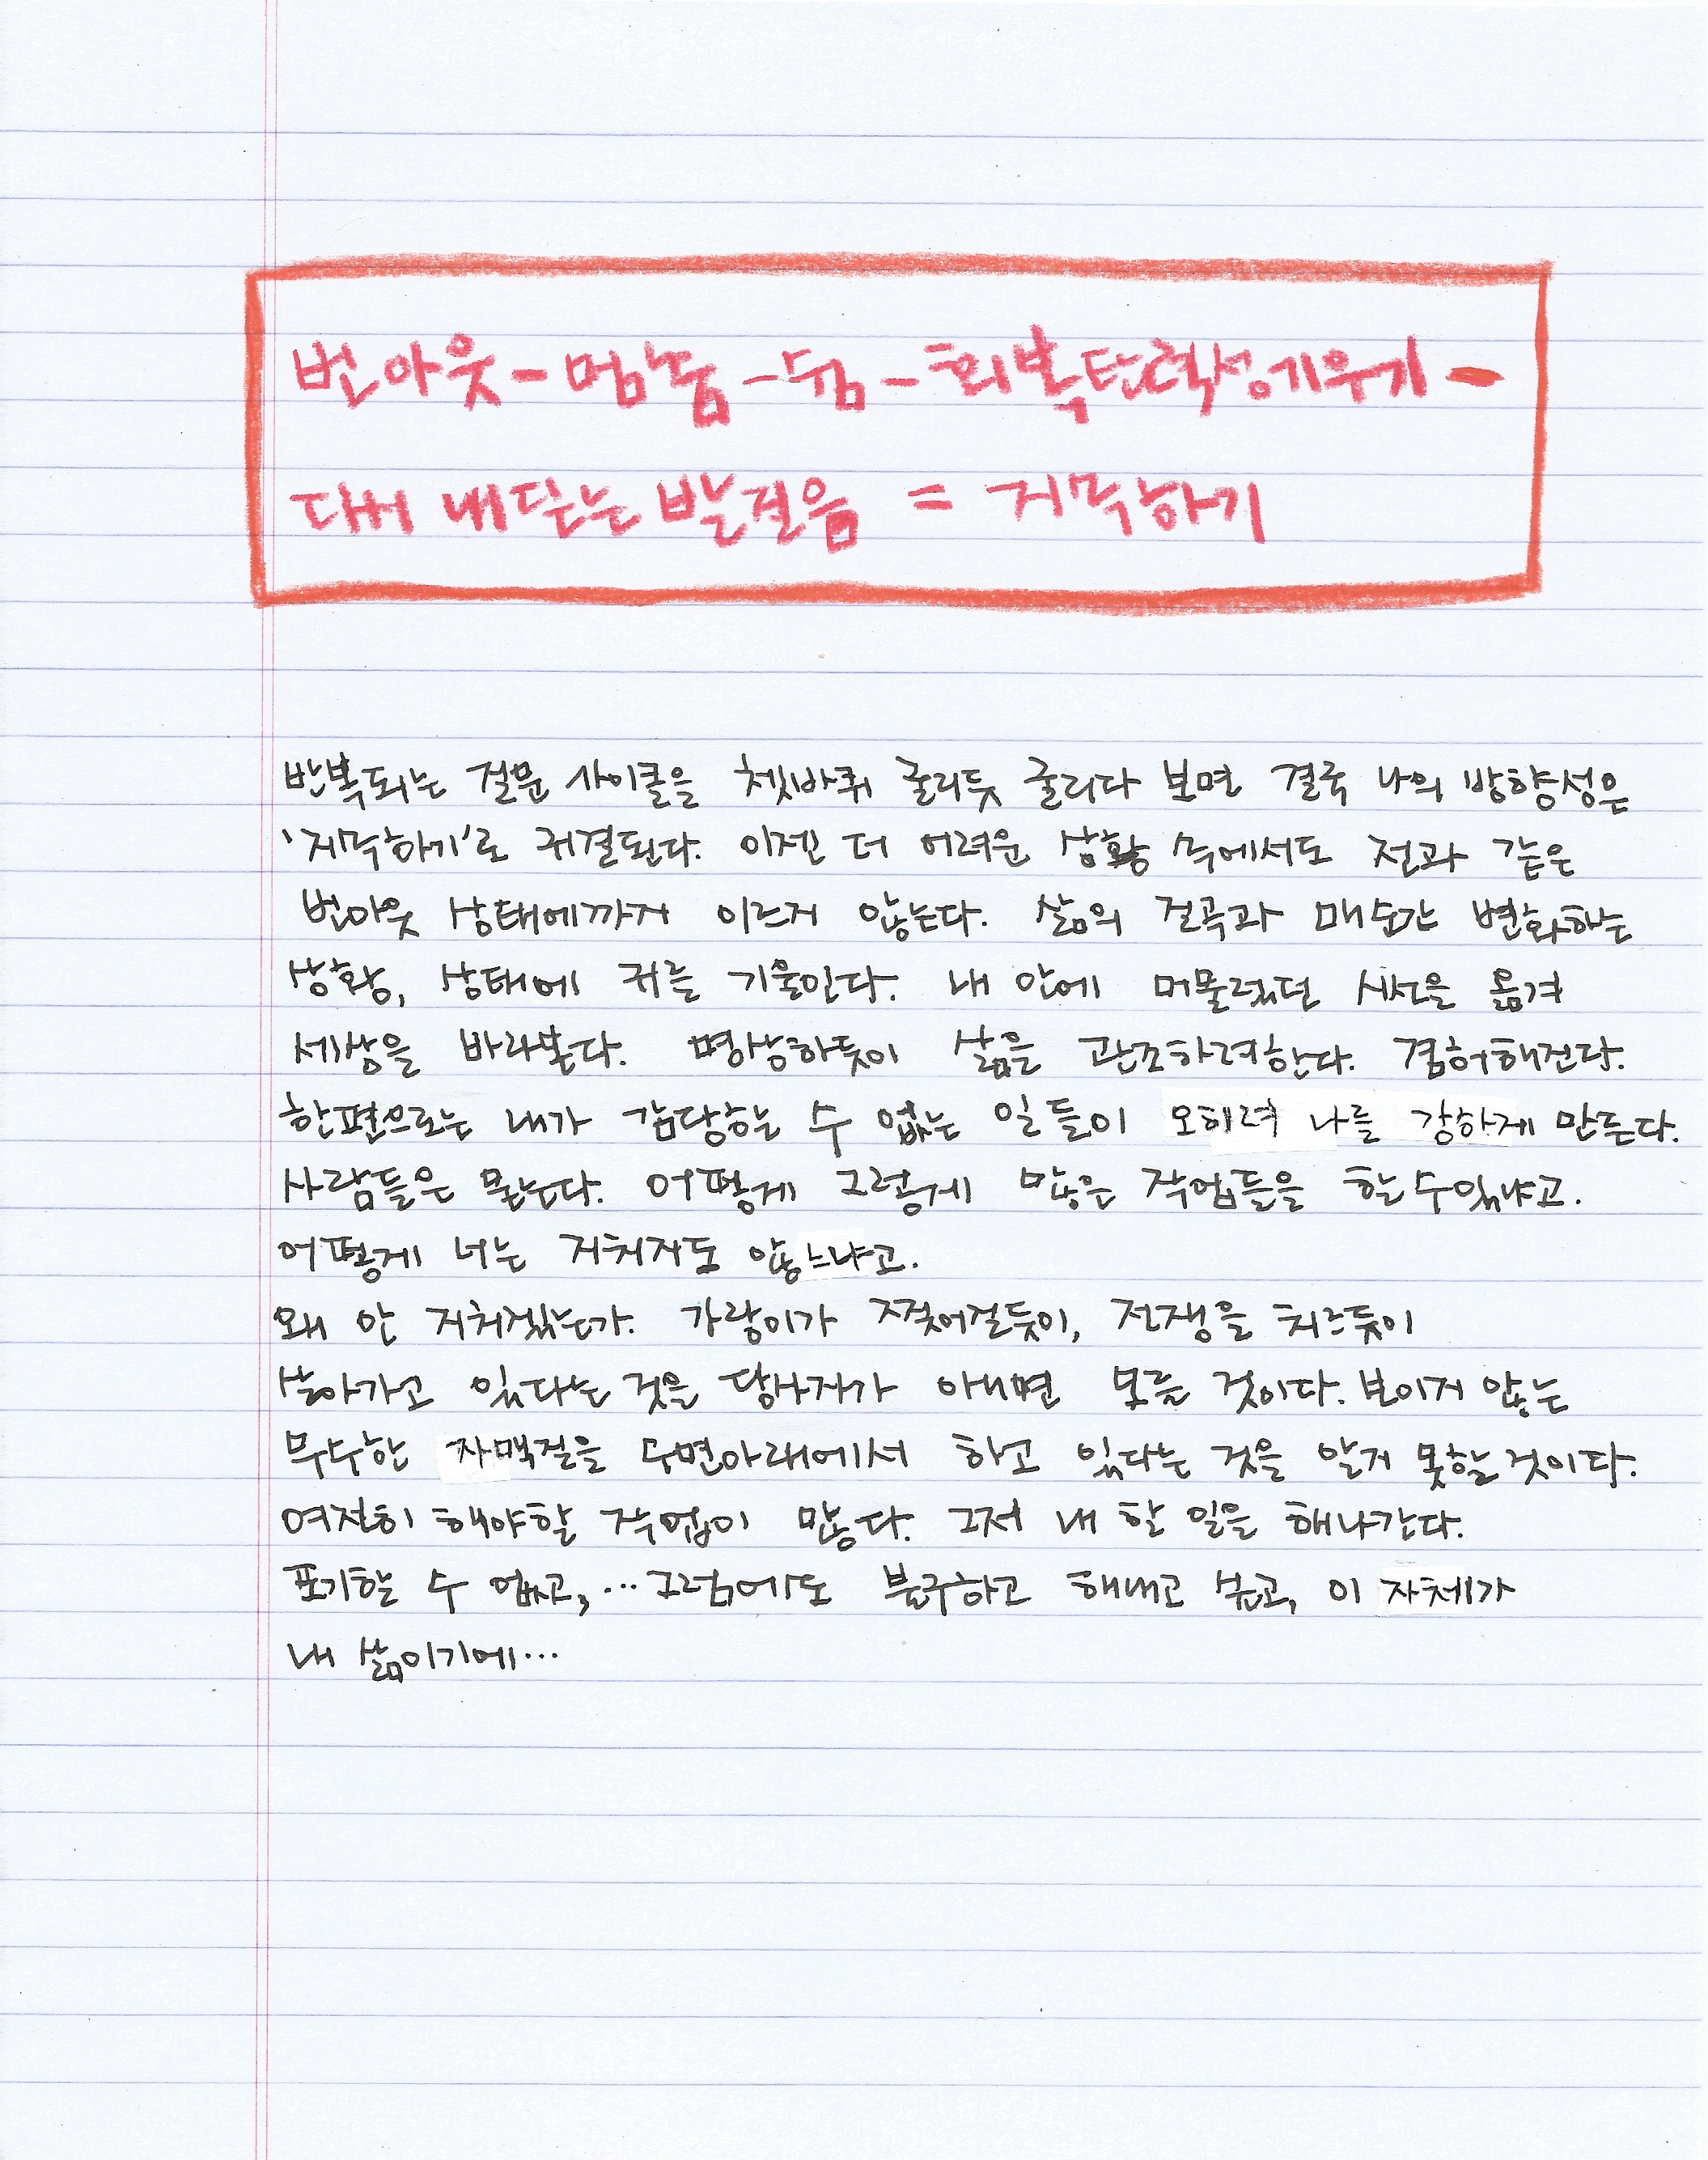 번아웃-멈춤-쉼-회복탄력성키우기-
다시 내딛는 발걸음 = 지속하기
반복되는 질문 사이클을 쳇바퀴 굴리듯 굴리다 보면 결국 나의 방향성은
'지속하기'로 귀결된다. 이젠 더 어려운 상황 속에서도 전과 같은
번아웃 상태에까지 이르지 않는다. 삶의 질곡과 매순간 변화하는
상황, 상태에 귀를 기울인다. 내 안에 머물렀던 시선을 옮겨
세상을 바라본다. 명상하듯이 삶을 관조하려한다. 겸허해진다.
한편으로는 내가 감당할 수 없는 일들이 오히려 나를 강하게 만든다.
사람들은 묻는다. 어떻게 그렇게 많은 작업들을 할수있냐고.
어떻게 너는 지치지도 않느냐고.
왜 안 지치겠는가. 가랑이가 찢어질듯이, 전쟁을 치르듯이
살아가고 있다는 것을 당사자가 아니면 모를 것이다. 보이지 않는
무수한 자맥질을 수면아래에서 하고 있다는 것을 알지 못할 것이다.
여전히 해야할 작업이 많다. 그저 내 할 일을 해나간다.
포기할 수 없고, ...그럼에도 불구하고 해내고 싶고, 이 자체가
내 삶이기에...